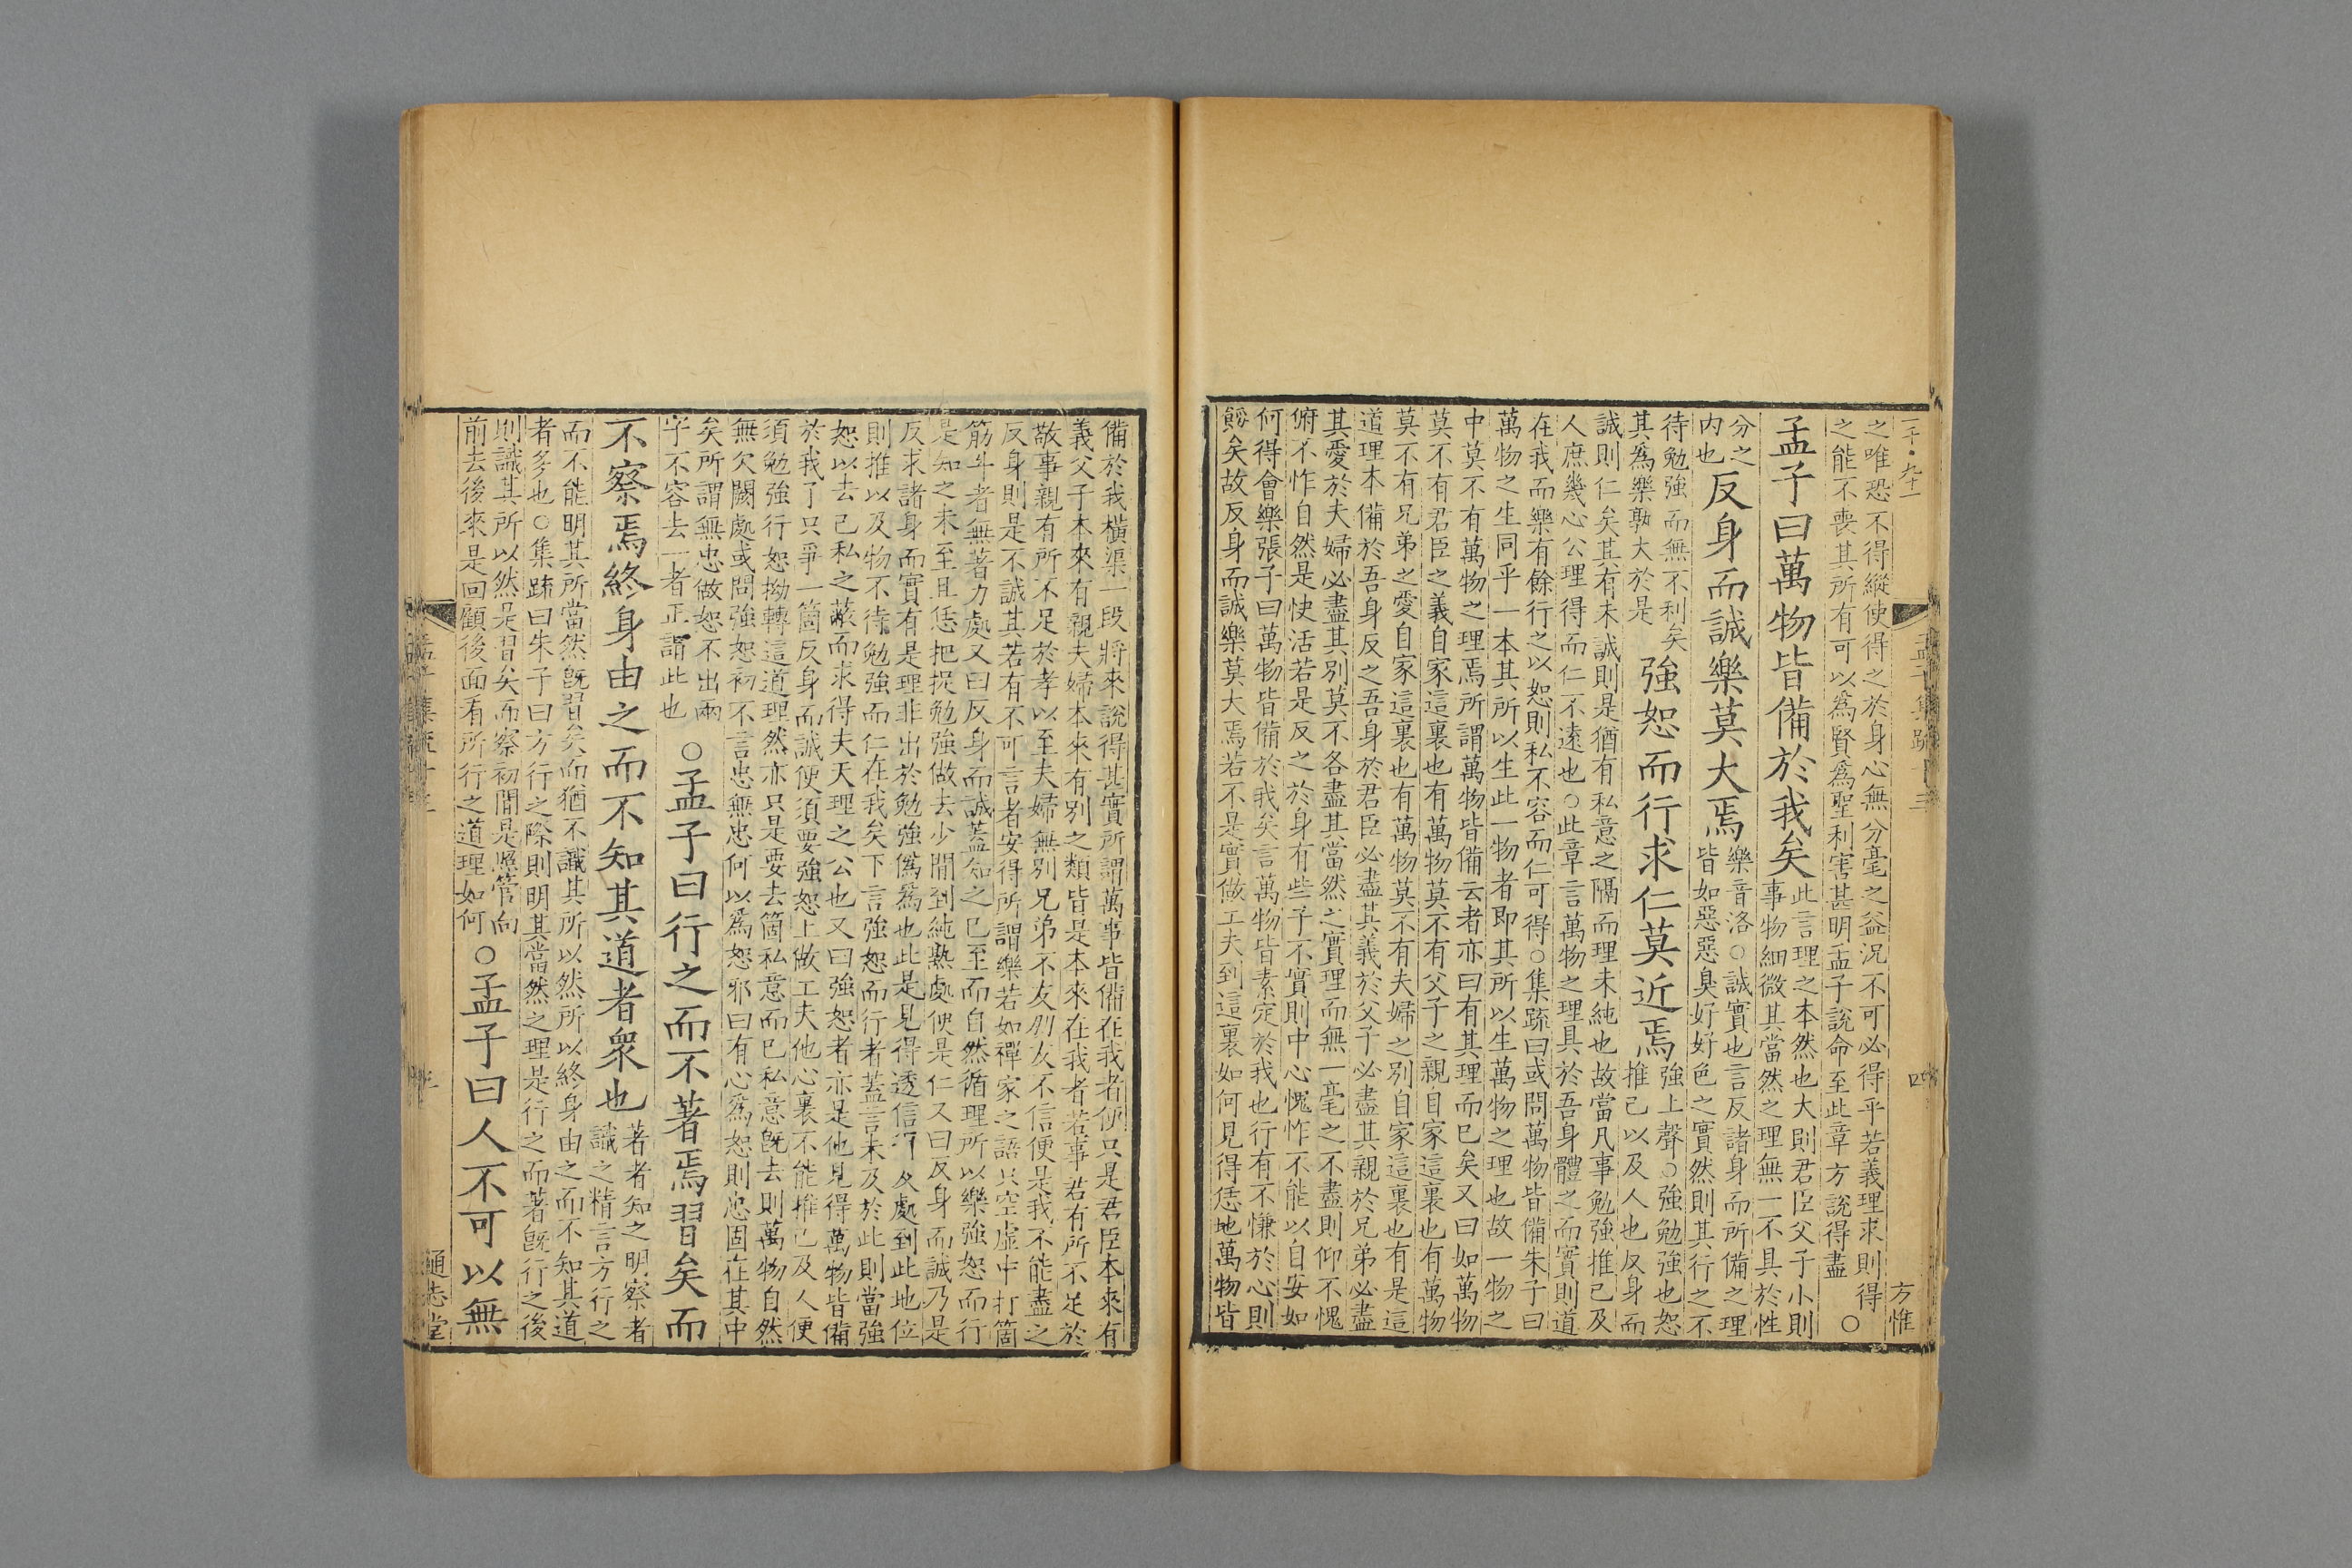 之唯恐不得縱使得之於身心無分毫之益況不可必得乎若義理求則得
之能不喪其所有可以爲賢爲聖利害甚明孟子說命至此章方說得盡○
孟子曰萬物皆備於我矣
此言理之本然也大則君臣父子小則
事物細微其當然之理無一不具於性
分之
內也
反身而誠樂莫大焉
樂音洛○誠實也言反諸身而所備之理
皆如惡惡臭好好色之實然則其行之不
待勉強而無不利矣
其爲樂孰大於是
強恕而行求仁莫近焉
強上聲○強勉強也恕
推己以及人也反身而
誠則仁矣其有未誠則是猶有私意之隔而理未純也故當凡事勉強推己及
人庶幾心公理得而仁不遠也○此章言萬物之理具於吾身體之而實則道
在我而樂有餘行之以恕則私不容而仁可得○集疏曰或問萬物皆備朱子曰
萬物之生同乎一本其所以生此一物者即其所以生萬物之理也故一物之
中莫不有萬物之理焉所謂萬物皆備云者亦曰有其理而已矣又曰如萬物
莫不有君臣之義自家這裏也有萬物莫不有父子之親自家這裏也有萬物
莫不有兄弟之愛自家這裏也有萬物莫不有夫婦之別自家這裏也有是這
道理本備於吾身反之吾身於君臣必盡其義於父子必盡其親於兄弟必盡
其愛於夫婦必盡其別莫不各盡其當然之實理而無一毫之不盡則仰不愧
俯不怍自然是快活若是反之於身有些子不實則中心愧怍不能以自安如
何得會樂張子曰萬物皆備於我矣言萬物皆素定於我也行有不慊於心則
餒矣故反身而誠樂莫大焉若不是實做工夫到這裏如何見得恁地萬物皆
備於我橫渠一段將來說得甚實所謂萬事皆備在我者便只是君臣本來有
義父子本來有親夫婦本來有別之類皆是本來在我者若事君有所不足於
敬事親有所不足於孝以至夫婦無別兄弟不友朋友不信便是我不能盡之
反身則是不誠其若有不可言者安得所謂樂若如禪家之語只空虛中打箇
筋斗者無著力處又曰反身而誠蓋知之已至而自然循理所以樂強恕而行
是知之未至且恁把捉勉強做去少間到純熟處便是仁又曰反身而誠乃是
反求諸身而實有是理非出於勉強僞爲也此是見得透信得及處到此地位
則推以及物不待勉強而仁在我矣下言強恕而行者蓋言未及於此則當強
恕以去己私之蔽而求得夫天理之公也又曰強恕者亦是他見得萬物皆備
於我了只爭一箇反身而誠便須要強恕上做工夫他心裏不能推己及人便
須勉強行恕拗轉這道理然亦只是要去箇私意而已私意旣去則萬物自然
無欠闕處或問強恕初不言忠無忠何以爲恕邪曰有心爲恕則忠固在其中
矣所謂無忠做恕不出兩
字不容去一者正謂此也
○孟子曰行之而不著焉習矣而
不察焉終身由之而不知其道者衆也
著者知之明察者
識之精言方行之
而不能明其所當然旣習矣而猶不識其所以然所以終身由之而不知其道
者多也○集疏曰朱子曰方行之際則明其當然之理是行之而著旣行之後
則識其所以然是習矣而察初間是照管向
前去後來是回顧後面看所行之道理如何
○孟子曰人不可以無
通志堂
四
方惟